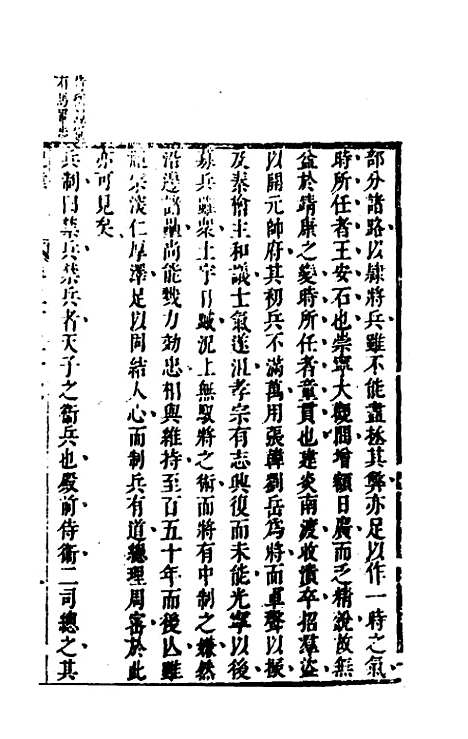 部分諸路以隸將兵雖不能盡拯其弊亦足以作一時之氣
時所任者王安石也崇寧大觀間增額日廣而乏精說故無
益於靖康之變時所任者童貫也建炎南渡收潰卒招羣盜
以開元帥府其初兵不滿萬用張韓劉岳爲將而軍聲以振
及秦檜主和議士氣遂沮孝宗有志興復而未能光寧以後
募兵雖衆土宇日蹙況上無馭將之術而將有中制之嫌然
沿邊諸壘尚能戮力効忠相與維持至百五十年而後亾雖
宋深仁厚澤足以固結人心而制兵有道緫理周密於此
亦可見矣
兵制曰禁兵禁兵者天子之衞兵也殿前侍衞二司總之其